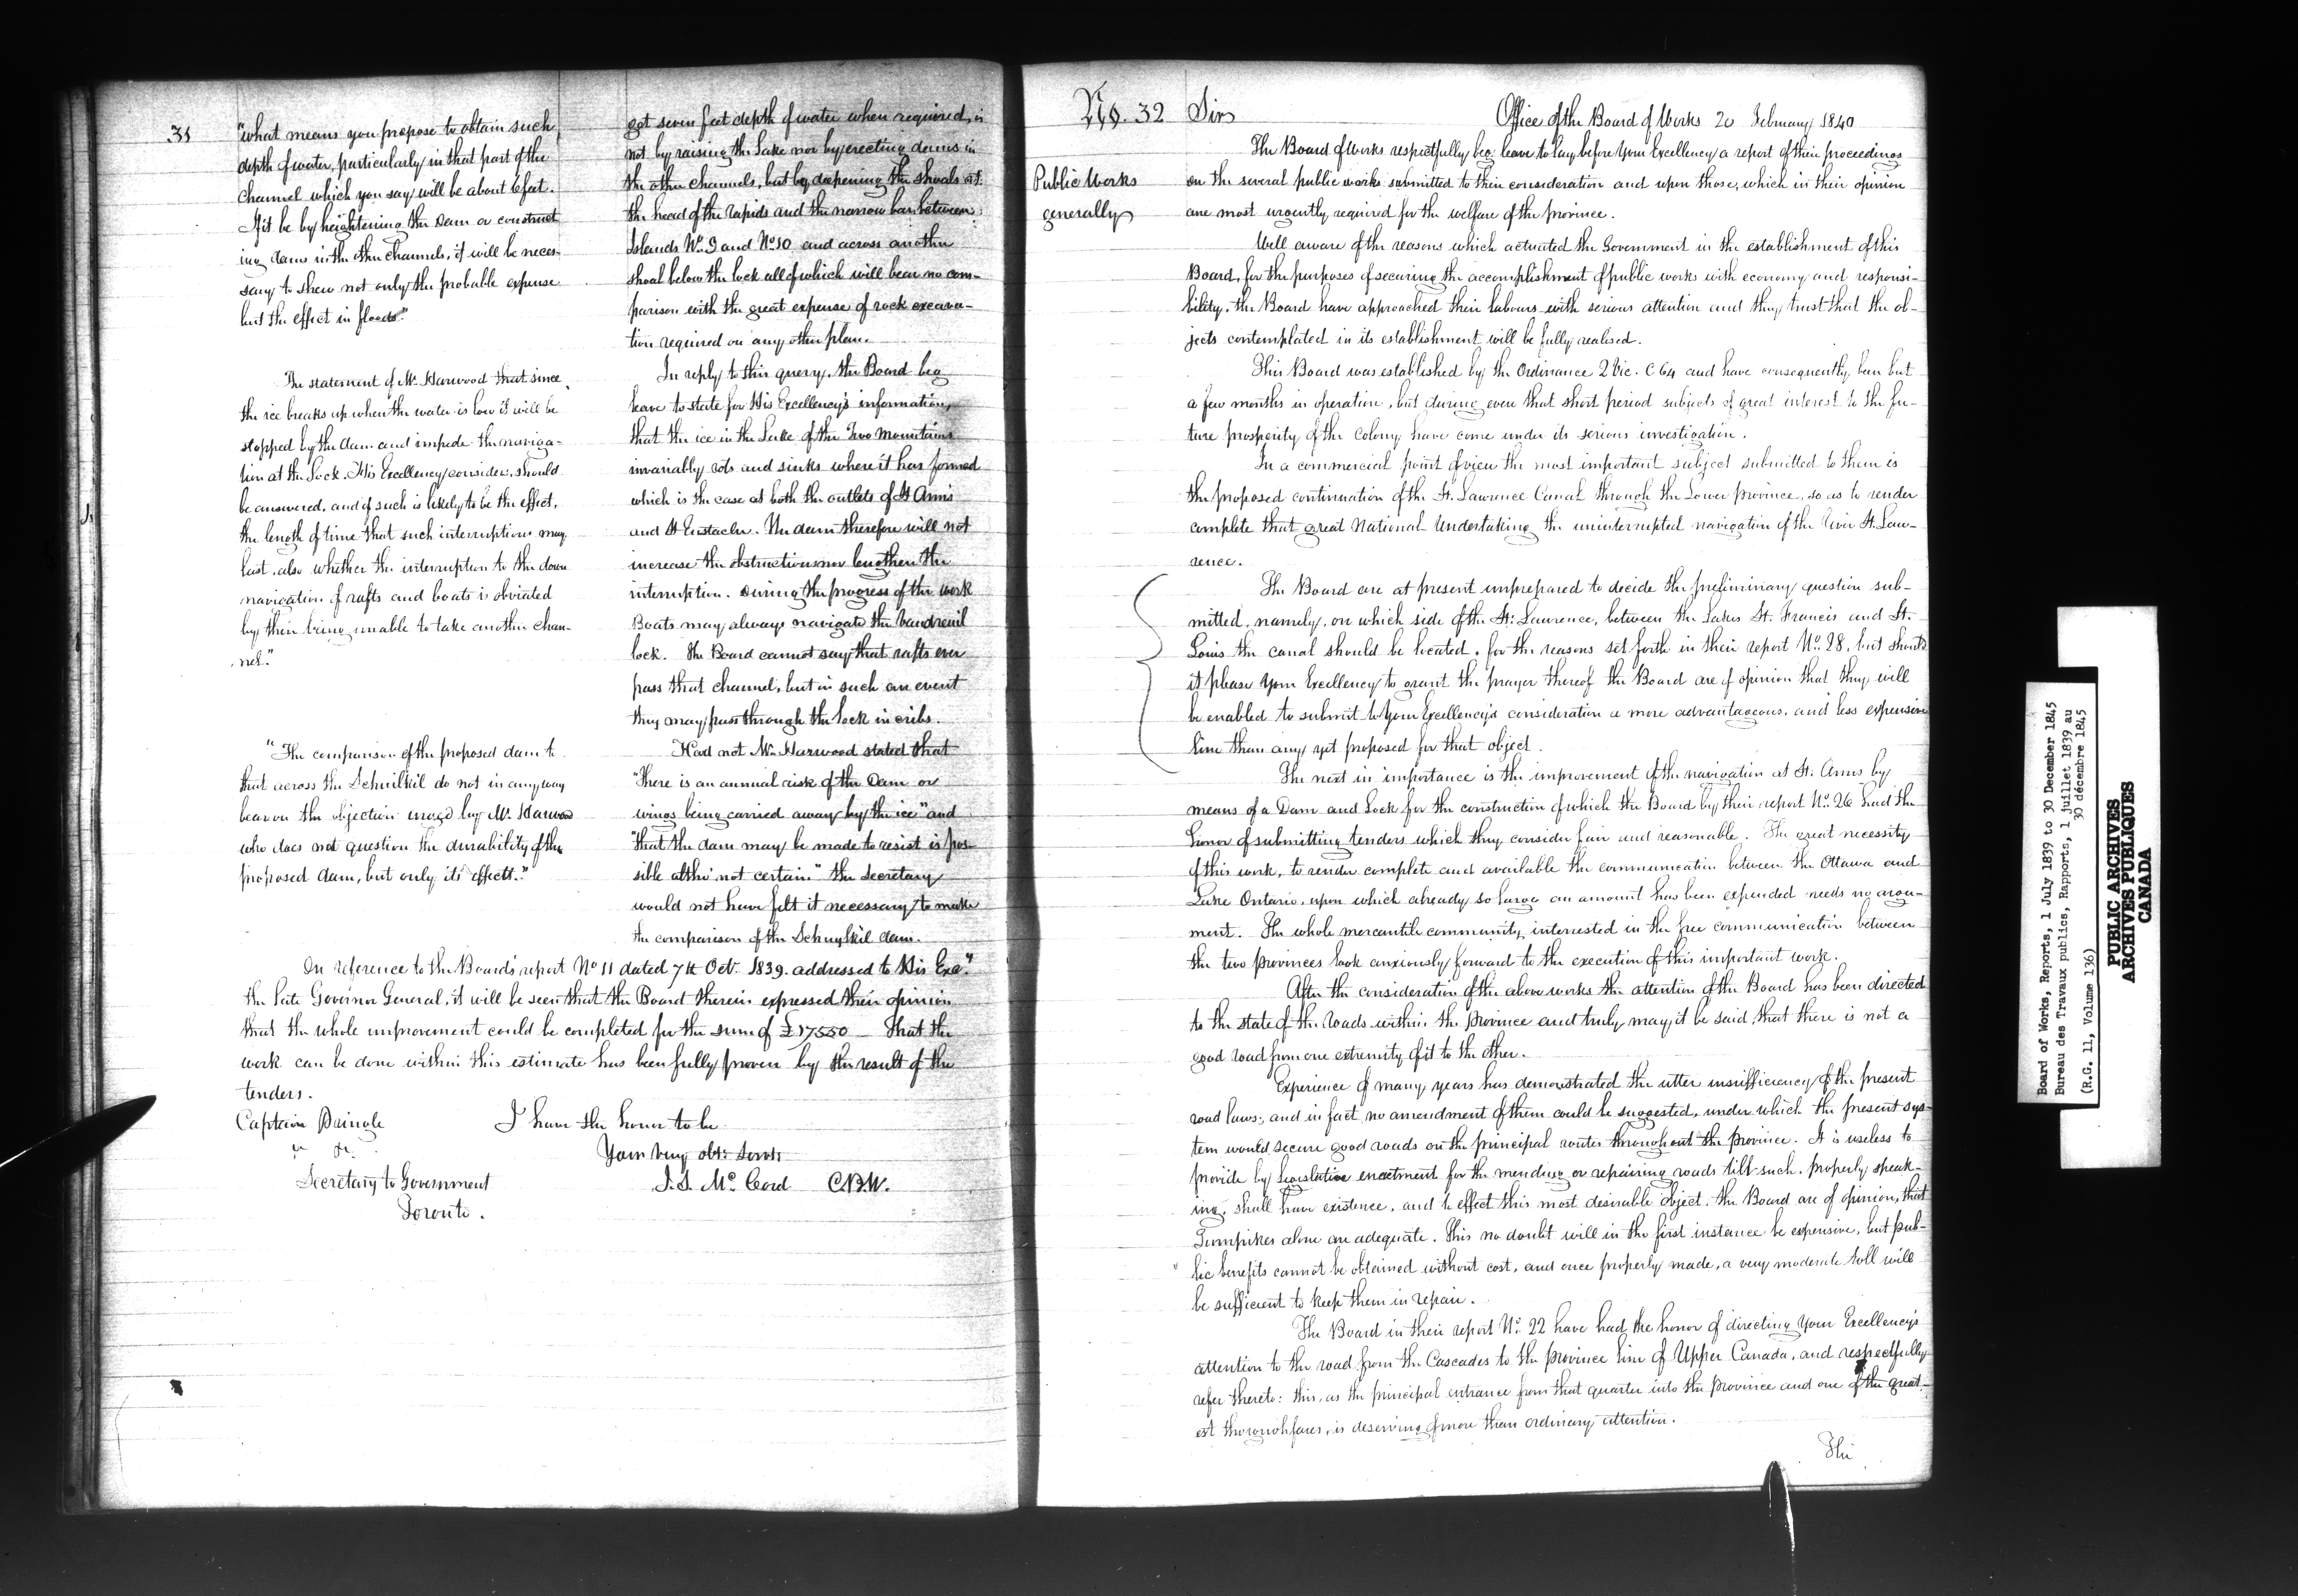 31
"what means you propose to obtain such
depth of water, particularly in that part of the
channel which you say will be about 6 feet.
If it be by heightening the Dam or construct
ing dams in the other channels, it will be neces-
sary to shew not only the probable expense
but the effect in floods."
The statement of Mr. Harwood that since
the ice breaks up when the water is low it will be
stopped by the dam and impede the naviga-
tion at the Lock. His Excellency considers, should
be answered, and if such is likely to be the effect,
the length of time that such interruptions may
last, also whether the interruption to the down
navigation of rafts and boats is obviated
by their being unable to take another chan-
nel."
"The comparison of the proposed dam to
that across the Schuilkil do not in any way
bear on the objection urged by Mr. Harwood
who does not question the durability of the
proposed dam, but only its effects."
get seven feet depth of water when required, is
not by raising the Lake nor by erecting dams in
the other channels, but by deepening the shoals at
the head of the rapids and the narrow bar between
Islands No. 9 and No. 10 and across another
shoal below the lock all of which will bear no com-
parison with the great expense of rock excava-
tion required on any other plan.
In reply to this query, the Board beg
leave to state for His Excellency's information,
that the ice in the Lake of the Two Mountains
invariably rots and sinks where it has formed
which is the case at both the outlets of St Anns
and St Eustache. The dam therefore will not
increase the obstructions nor lengthen the
interruption. During the progress of the work
Boats may always navigate the Vaudreuil
lock. The Board cannot say that rafts ever
pass that channel, but in such an event
they may pass through the lock in cribs.
Had not Mr Harwood stated that
"There is an annual risk of the Dam or
wings being carried away by the ice" and
"that the dam may be made to resist is pos-
sible altho' not certain" the Secretary
would not have felt it necessary to make
the comparison of the Schuylkil dam.
In reference to the Boards' report No 11 dated 7th Octr. 1839. addressed to His Excy.
the late Governor General, it will be seen that the Board therein expressed their opinion
that the whole improvement could be completed for the sum of £17550 — That the
work can be done within this estimate has been fully proven by the result of the
tenders.
Captain Pringle
I have the honor to be
Your very obt: servts
Secretary to Government
J. S. Mc. Cord C.B.W.
Toronto.
No. 32
Public Works
generally
Sir
Office of the Board of Works 20 February 1840
The Board of Works respectfully beg leave to lay before Your Excellency a report of their proceedings
on the several public works submitted to their consideration and upon those, which in their opinion
are most urgently required for the welfare of the province.
Well aware of the reasons which actuated the Government in the establishment of this
Board, for the purposes of securing the accomplishment of public works with economy and responsi-
bility, the Board have approached their labours with serious attention and they trust that the ob-
jects contemplated in its establishment will be fully realised.
This Board was established by the Ordinance 2 Vic. C 64 and have consequently been but
a few months in operation, but during even that short period subjects of great interest to the fu-
ture prosperity of the Colony have come under its serious investigation.
In a commercial point of view the most important subject submitted to them is
the proposed continuation of the St. Lawrence Canal through the Lower province, so as to render
complete that great National Undertaking the uninterrupted navigation of the River St. Law-
rence.
The Board are at present unprepared to decide the preliminary question sub-
mitted, namely, on which side of the St. Lawrence, between the Lakes St. Francis and St.
Louis the canal should be located, for the reasons set forth in their report No. 28, but should
it please Your Excellency to grant the prayer thereof the Board are of opinion that they will
be enabled to submit to Your Excellency's consideration a more advantageous, and less expensive
line than any yet proposed for that object.
The next in importance is the improvement of the navigation at St. Anns by
means of a Dam and Lock for the construction of which the Board by their report No. 26 had the
honor of submitting tenders which they consider fair and reasonable. The great necessity
of this work, to render complete and available the communication between the Ottawa and
Lake Ontario, upon which already so large an amount has been expended needs no argu-
ment. The whole mercantile community interested in the free communication between
the two provinces look anxiously forward to the execution of this important work.
After the consideration of the above works the attention of the Board has been directed
to the state of the roads within the province and truly may it be said, that there is not a
good road from one extremity of it to the other.
Experience of many years has demonstrated the utter insufficiency of the present
road laws; and in fact no amendment of them could be suggested, under which the present sys-
tem would secure good roads on the principal routes throughout the province. It is useless to
provide by Legislative enactment for the mending or repairing roads till such, properly speak-
ing, shall have existence, and to effect this most desirable object, the Board are of opinion, that
Turnpikes alone are adequate. This no doubt will in the first instance be expensive, but pub-
lic benefits cannot be obtained without cost, and once properly made, a very moderate toll will
be sufficient to keep them in repair.
The Board in their report No. 22 have had the honor of directing Your Excellency's
attention to the road from the Cascades to the province line of Upper Canada, and respectfully
refer thereto: this, as the principal entrance from that quarter into the province and one of the great-
est thoroughfares, is deserving of more than ordinary attention.
The
Board of Works, Reports, 1 July 1839 to 30 December 1845
Bureau des Travaux publics, Rapports, 1 juillet 1839 au
30 décembre 1845
(R.G. 11, Volume 136)
PUBLIC ARCHIVES
ARCHIVES PUBLIQUES
CANADA